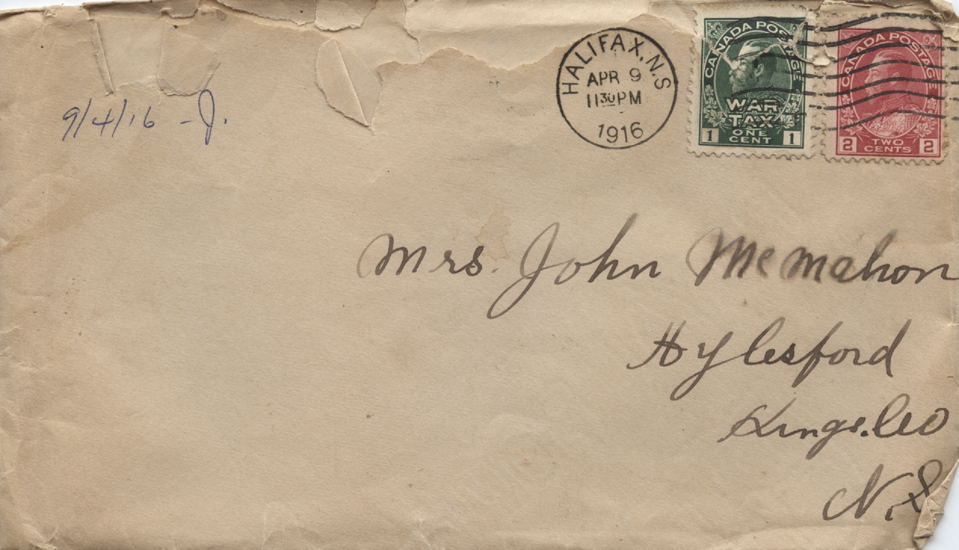 HALIFAX, N.S
APR 9
11 30 PM
1916
CANADA POSTAGE
WAR
TAX
1 ONE 1
CENT
CANADA POSTAGE
2 TWO 2
CENTS
9/4/16 - J.
Mrs. John McMahon
Aylesford
Kings. Co
N.S